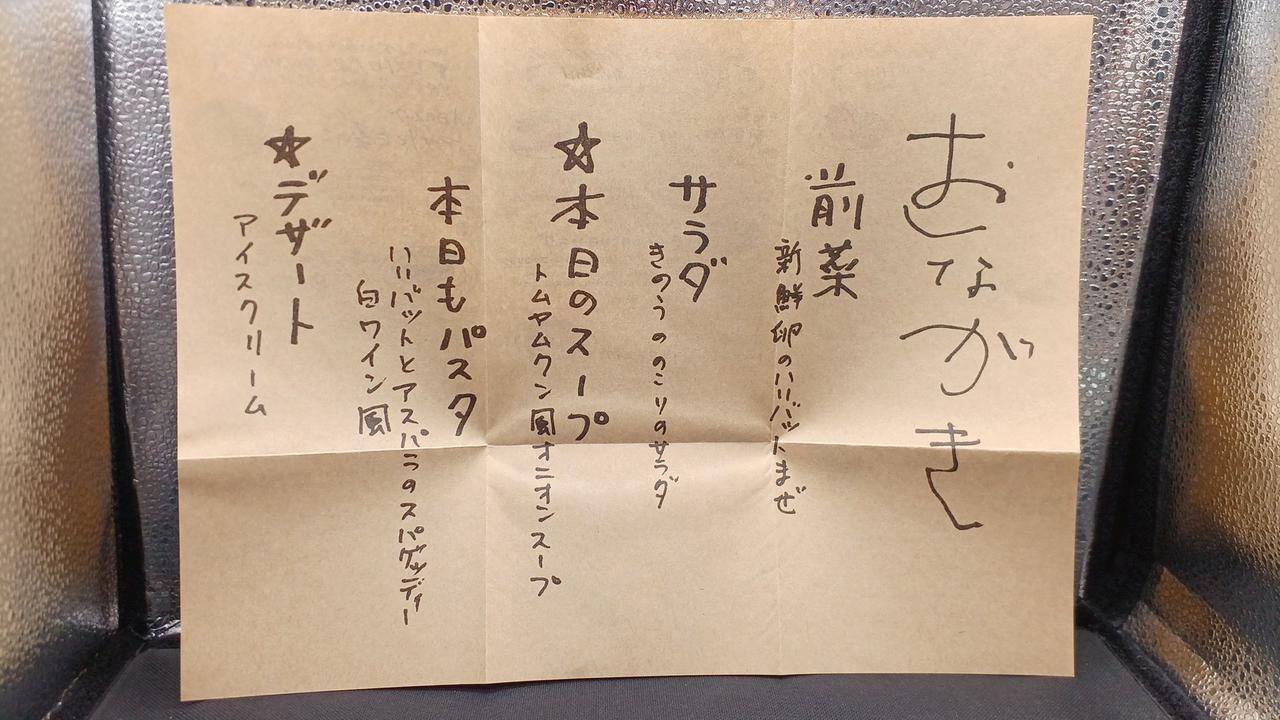 おしながき
前菜
新鮮卵のハリバットまぜ
サラダ
きのうののこりのサラダ
☆本日のスープ
トムヤムクン風オニオンスープ
本日もパスタ
ハリバットとアスパラのスパゲッディー
白ワイン風
☆デザート
アイスクリーム